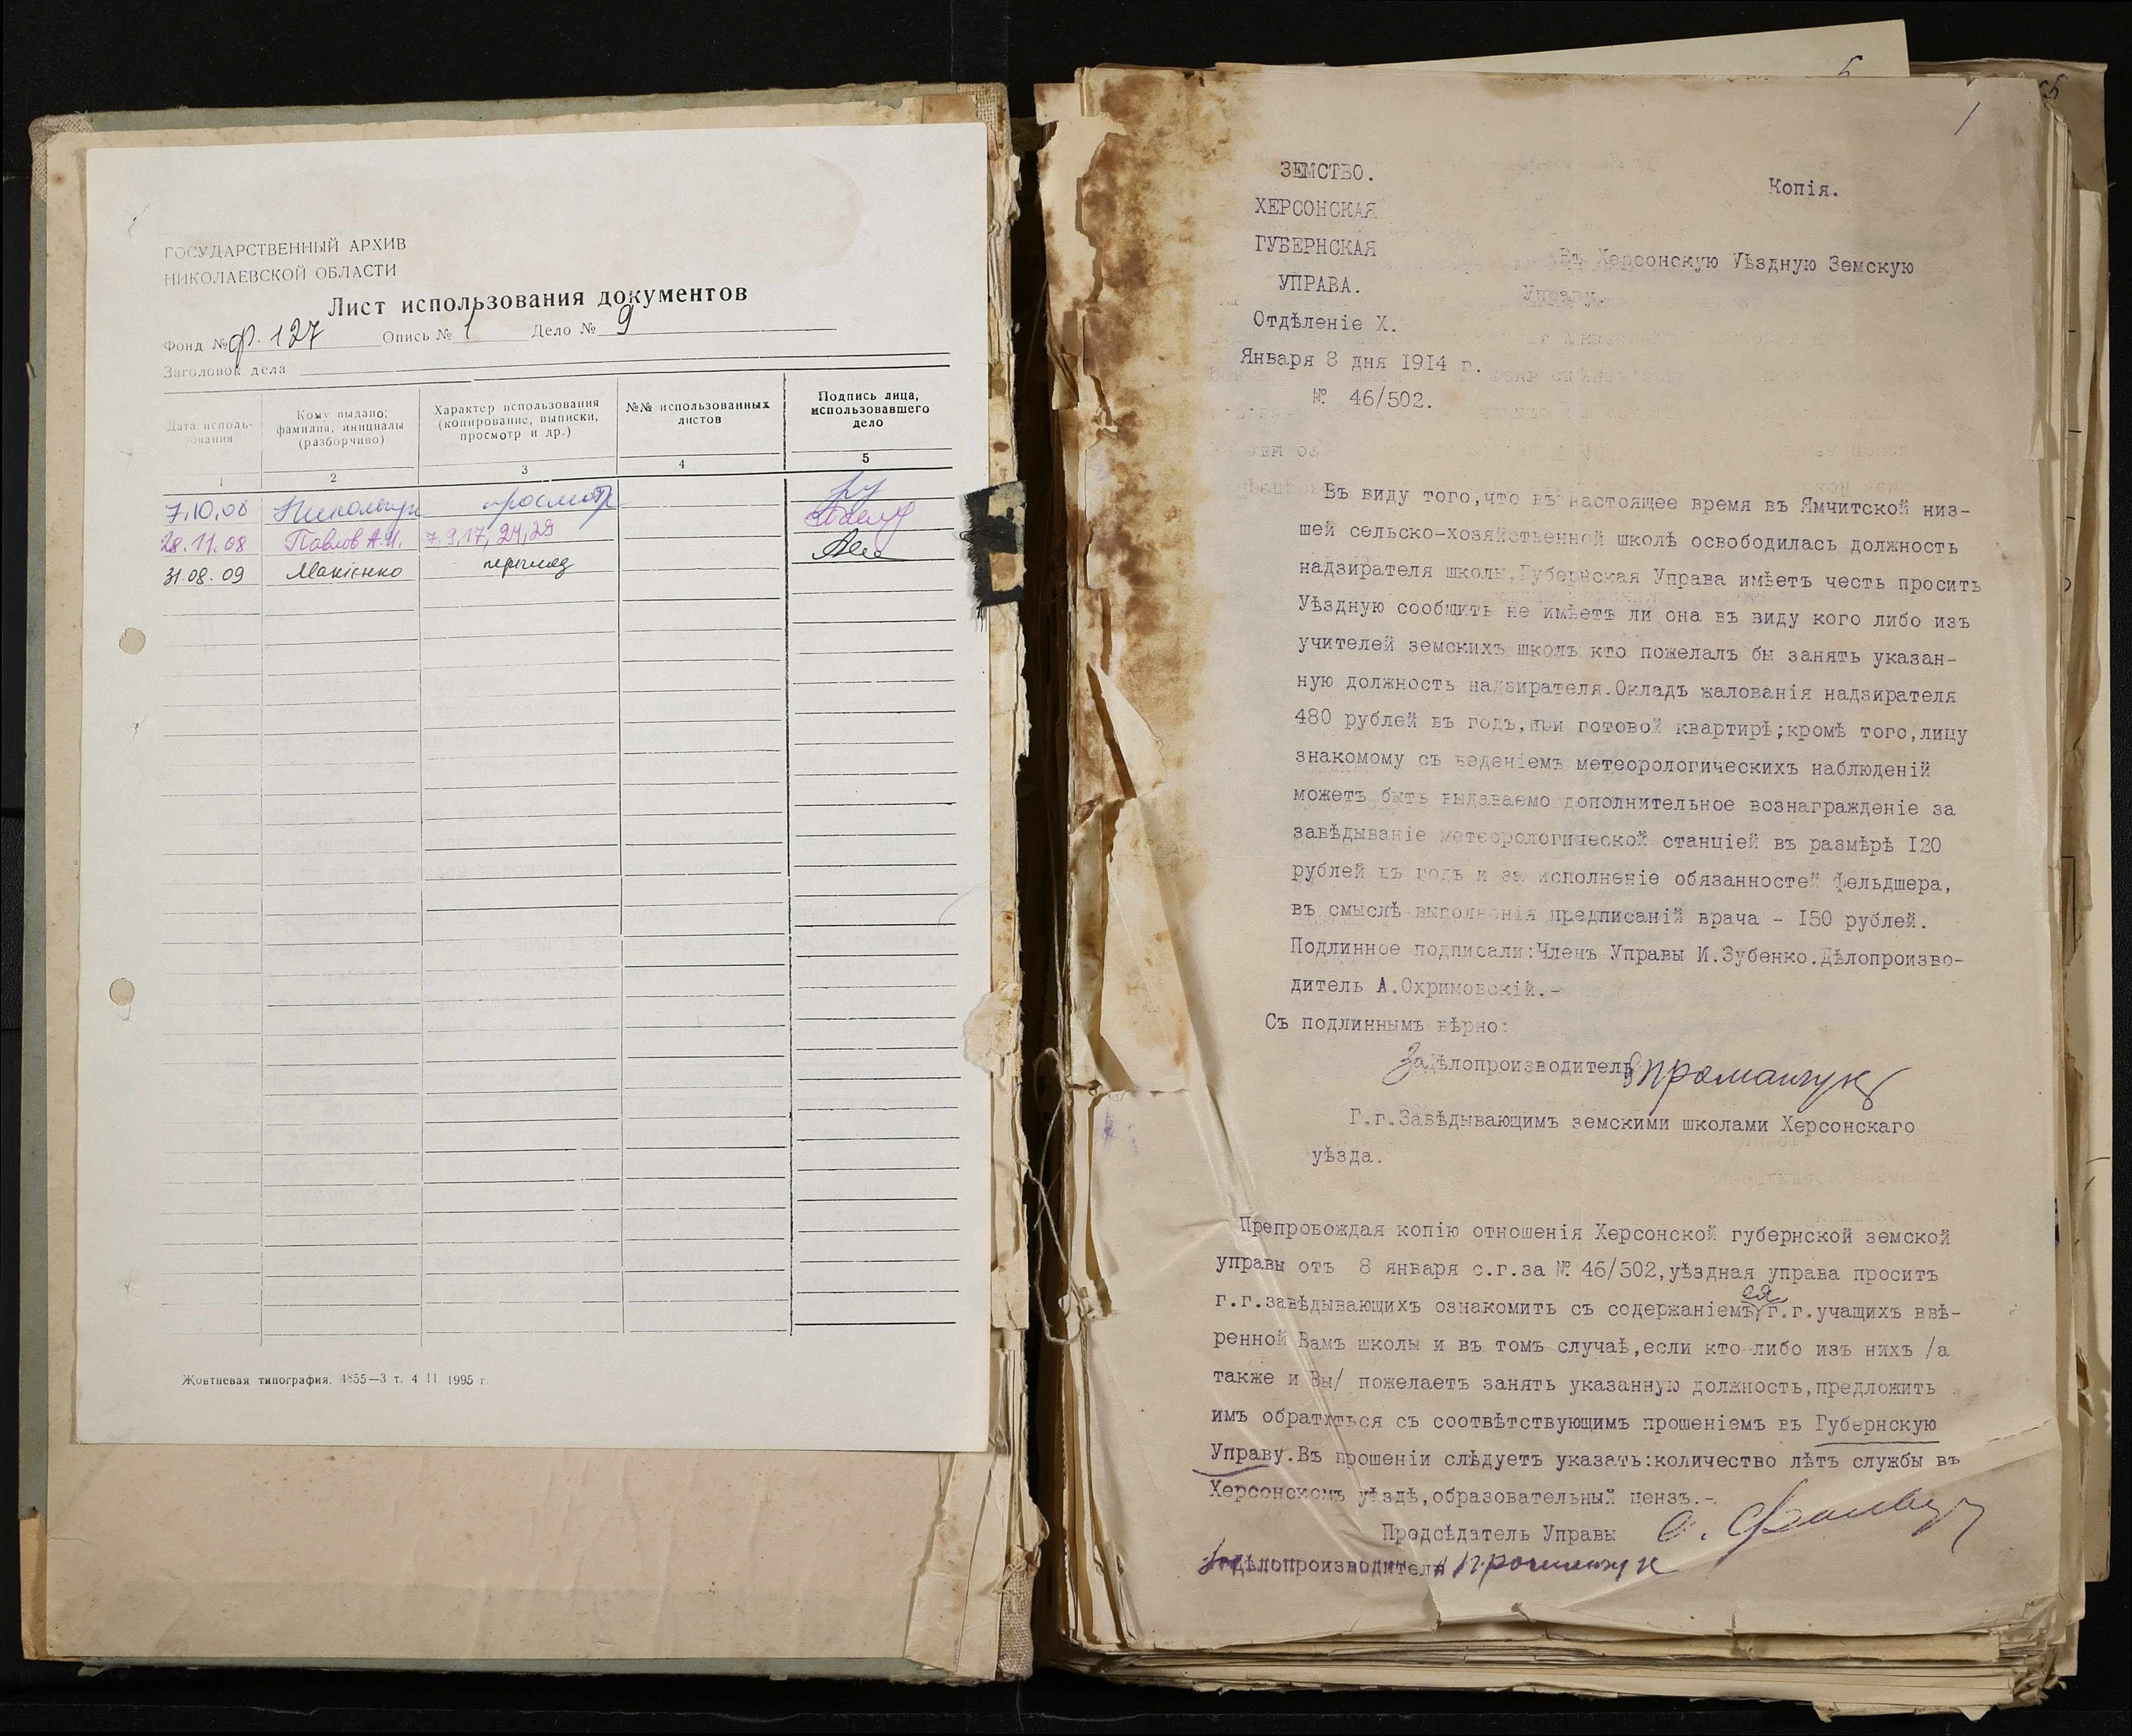 ГОСУДАРСТВЕННЫЙ АРХИВ
НИКОЛАЕВСКОЙ ОБЛАСТИ
Лист использования документов
Фонд № ф. 127 Опись № 1 Дело № 9
Заголовок дела
Дата исполь-
зования
Кому выдано;
фамилия, инициалы
(разборчиво)
Характер использования
(копирование, выписки,
просмотр и др.)
№№ использованных
листов
Подпись лица,
использовавшего
дело
1 2 3 4 5
7.10.08 просмотр
28.11.08 Павлов А.И. 7,9,17,24,28
31.08.09 Макієнко перегляд
Жовтневая типография. 4855—3 т. 4 II 1995 г.
1
ЗЕМСТВО.
Копія.
ХЕРСОНСКАЯ
ГУБЕРНСКАЯ
Въ Херсонскую Уѣздную Земскую
УПРАВА.
Управу.
Отдѣленіе X.
Января 8 дня 1914 г.
№ 46/502.
Въ виду того,что въ настоящее время въ Ямчитской низ-
шей сельско-хозяйственной школѣ освободилась должность
надзирателя школы,Губернская Управа имѣетъ честь просить
Уѣздную сообщить не имѣетъ ли она въ виду кого либо изъ
учителей земскихъ школъ кто пожелалъ бы занять указан-
ную должность надзирателя.Окладъ жалованія надзирателя
480 рублей въ годъ,при готовой квартирѣ;кромѣ того,лицу
знакомому съ веденіемъ метеорологическихъ наблюденій
можетъ быть выдаваемо дополнительное вознагражденіе за
завѣдываніе метеорологической станціей въ размѣрѣ I20
рублей въ годъ и за исполненіе обязанностей фельдшера,
въ смыслѣ выполненія предписаній врача - I50 рублей.
Подлинное подписали:Членъ Управы И.Зубенко.Дѣлопроизво-
дитель А.Охримовскій.-
Съ подлиннымъ вѣрно:
За Дѣлопроизводитель
Г.г.Завѣдывающимъ земскими школами Херсонскаго
уѣзда.
Препробождая копію отношенія Херсонской губернской земской
управы отъ 8 января с.г.за № 46/502,уѣздная управа проситъ
г.г.завѣдывающихъ ознакомить съ содержаніемъ ея г.г.учащихъ ввѣ-
ренной Вамъ школы и въ томъ случаѣ,если кто-либо изъ нихъ /а
также и Вы/ пожелаетъ занять указанную должность,предложить
имъ обратиться съ соотвѣтствующимъ прошеніемъ въ Губернскую
Управу.Въ прошеніи слѣдуетъ указать:количество лѣтъ службы въ
Херсонскомъ уѣздѣ,образовательный цензъ.-
Предсѣдатель Управы
За дѣлопроизводителя